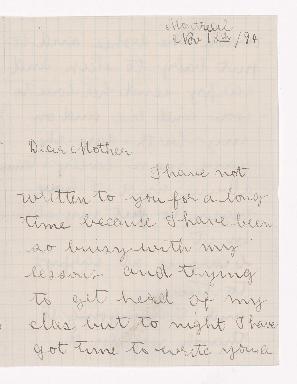 Montreal
Nov 12th/94
Dear Mother
I have not
written to you for a long
time because I have been
so busy with my
lessons and trying
to get head of my
clas but to night I have
got time to write you a